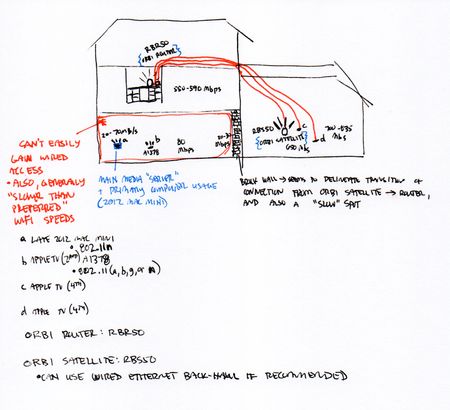 RBR50
{ORBI ROUTER}
550-590 Mbps
20-70MB/s
a
b
A1378
80
Mbps
20-30
Mbps
RBS50
{ORBI SATELLITE}
650 Mbs
c
d
Mbs
CAN'T EASILY
GAIN WIRED
ACCESS
• ALSO, GENERALLY
"SLOWER THAN
PREFERRED"
WIFI SPEEDS
MAIN MEDIA "SERVER"
+ PRIMARY COMPUTER USAGE
(2012 MAC MINI)
BRICK WALL → SEEMS TO DELINEATE TRANSITION OF
CONNECTION FROM ORBI SATELLITE → ROUTER,
AND ALSO A "SLOW" SPOT
a LATE 2012 MAC MINI
• 802.11n
b APPLE TV (2ND) A1378
• 802.11 (a, b, g, or n)
c APPLE TV (4TH)
d APPLE TV (4TH)
ORBI ROUTER: RBR50
ORBI SATELLITE: RBS50
• CAN USE WIRED ETHERNET BACK-HAUL IF RECOMMENDED